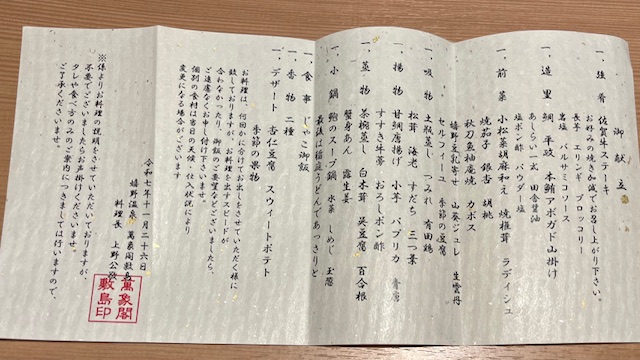 御献立
一、強肴 佐賀牛ステーキ
お好みの焼き加減でお召し上がり下さい。
長芋 エリンギ ブロッコリー
岩塩 バルサミコソース
一、造里 鯛 平政 本鮪アボガド山掛け
あしらい一式 田舎醤油
塩ポン酢 パウダー塩
一、前菜 小松菜胡麻和え 焼椎茸 ラディシュ
焼茄子 銀杏 胡桃
秋刀魚柚庵焼 カボス
嬉野豆乳寄せ 山葵ジュレ 生雲丹
セルフィーユ 季節の豆腐
一、吸物 土瓶蒸し つみれ 有田鶏
松茸 海老 すだち 三つ葉
一、揚物 甘鯛唐揚げ 小芋 パプリカ 青唐
すすき牛蒡 おろしポン酢
一、蒸物 茶碗蒸し 白木茸 呉豆腐 百合根
蟹身あん 露生姜
一、小鍋 鮑のスープ鍋 水菜 しめじ 玉葱
最後は稲庭うどんであっさりと
一、食事 じゃこ御飯
一、香物 二種
一、デザート 杏仁豆腐 スウィートポテト
季節の果物
お料理は、何回かに分けてお出しをさせていただく様に
致しておりますが、お料理を出すスピードが
合わなかったり、御飯のご要望などございましたら、
ご遠慮なくお申し付け下さいませ。
個別の食材は当日の天候・仕入状況により
変更になる場合がございます
令和七年十一月二十六日
嬉野温泉 萬象閣敷島
料理長 上野公
萬象閣
敷島印
※係よりお料理の説明をさせていただいておりますが、
不要でございましたらお声掛けくださいませ。
タレや食べ方のみのご案内につきましては行いますので、
ご了承くださいませ。